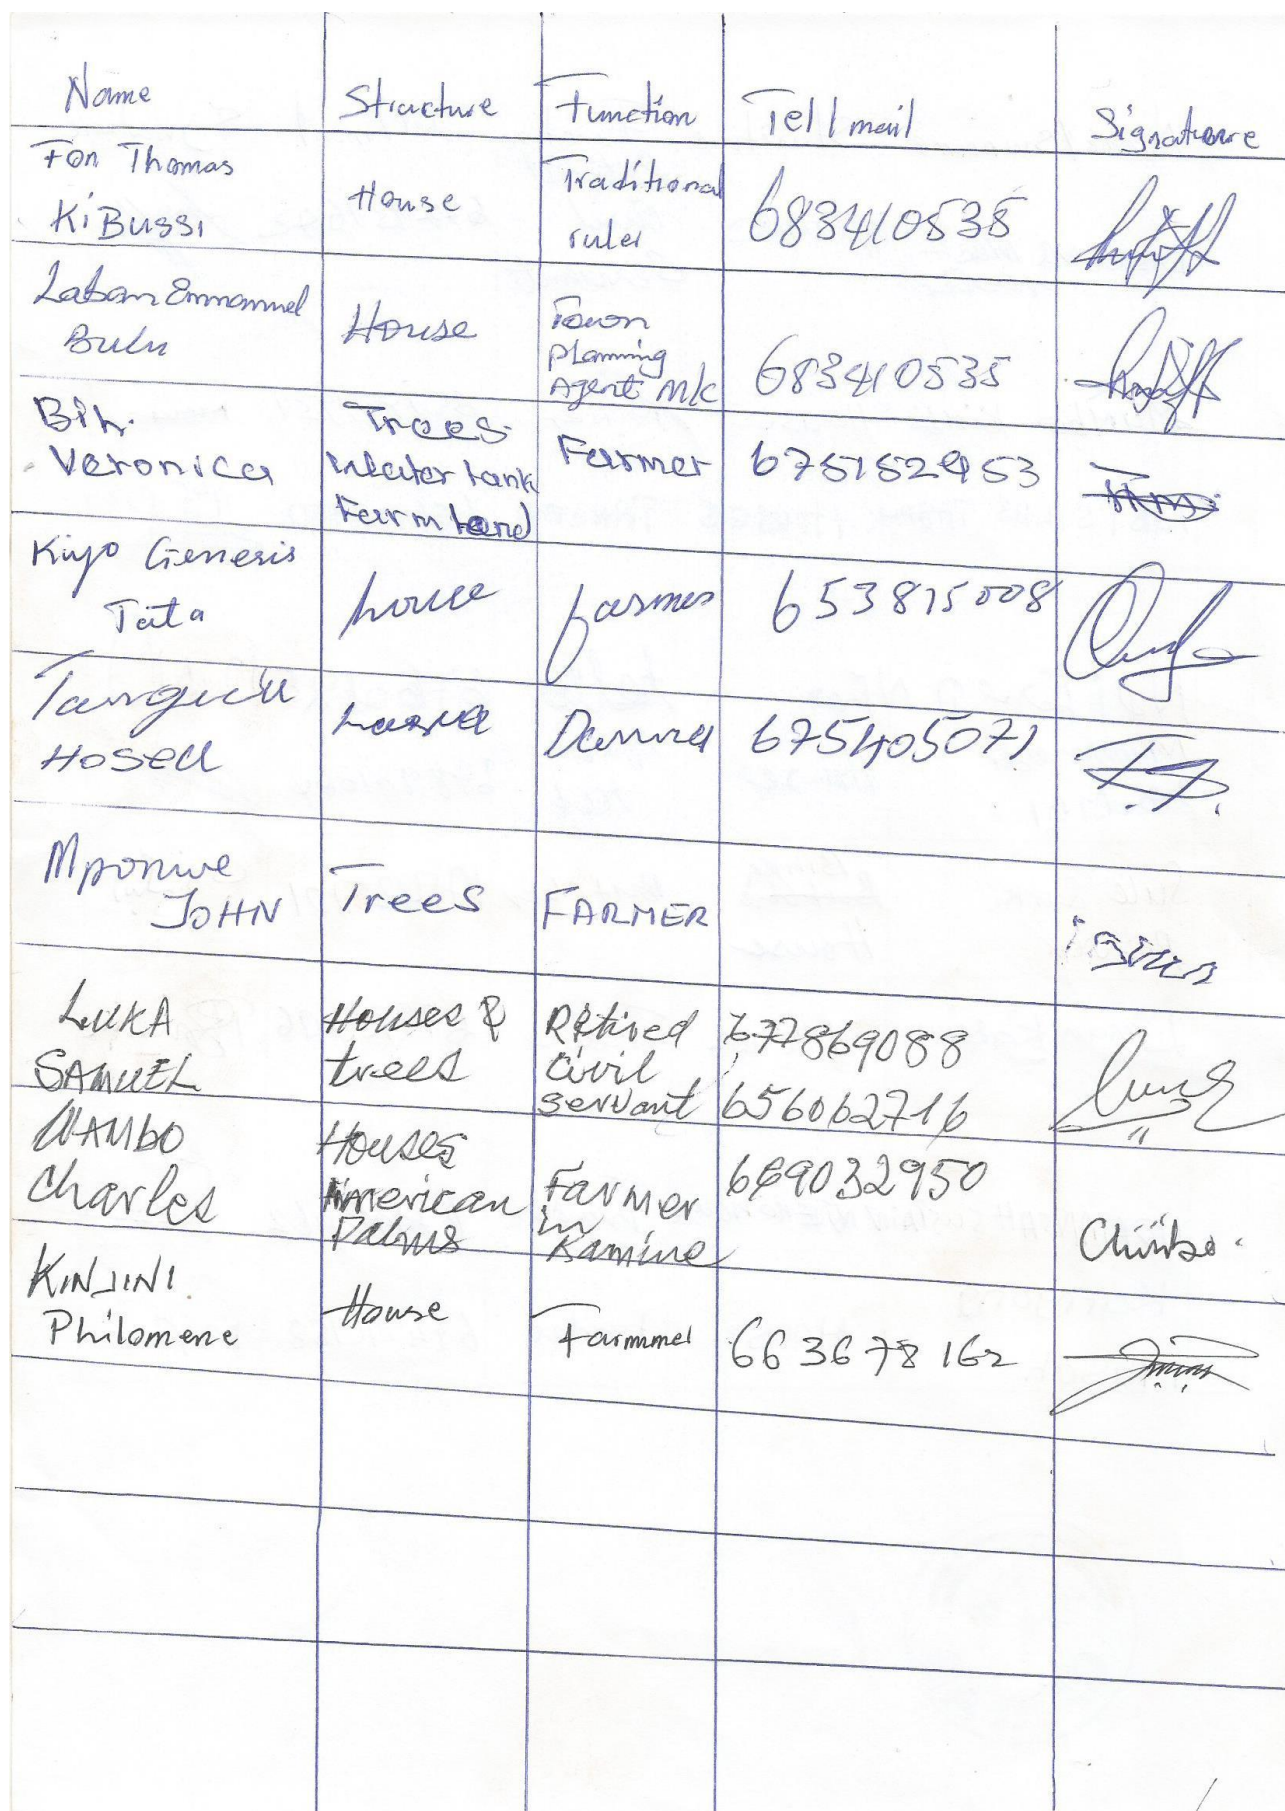 Name Structure Function Tel/mail Signature
Fon Thomas
KiBussi House Traditional
ruler 683410535
Laban Emmanuel
Bulu House Town
planning
Agent M/C 683410535
Bih.
Veronica Trees
water tank
Farm land Farmer 675152953
Kiyo Genesis
Tata house farmer 653815008
Hosea 675405071
Mponwe
JOHN Trees FARMER
LUKA
SAMUEL Houses &
trees Retired
civil
servant 677869088
656062716
WAMBO
Charles Houses
American
Palms Farmer
in
Ramine 669032950
KINJINI.
Philomene House Farmmer 663678162